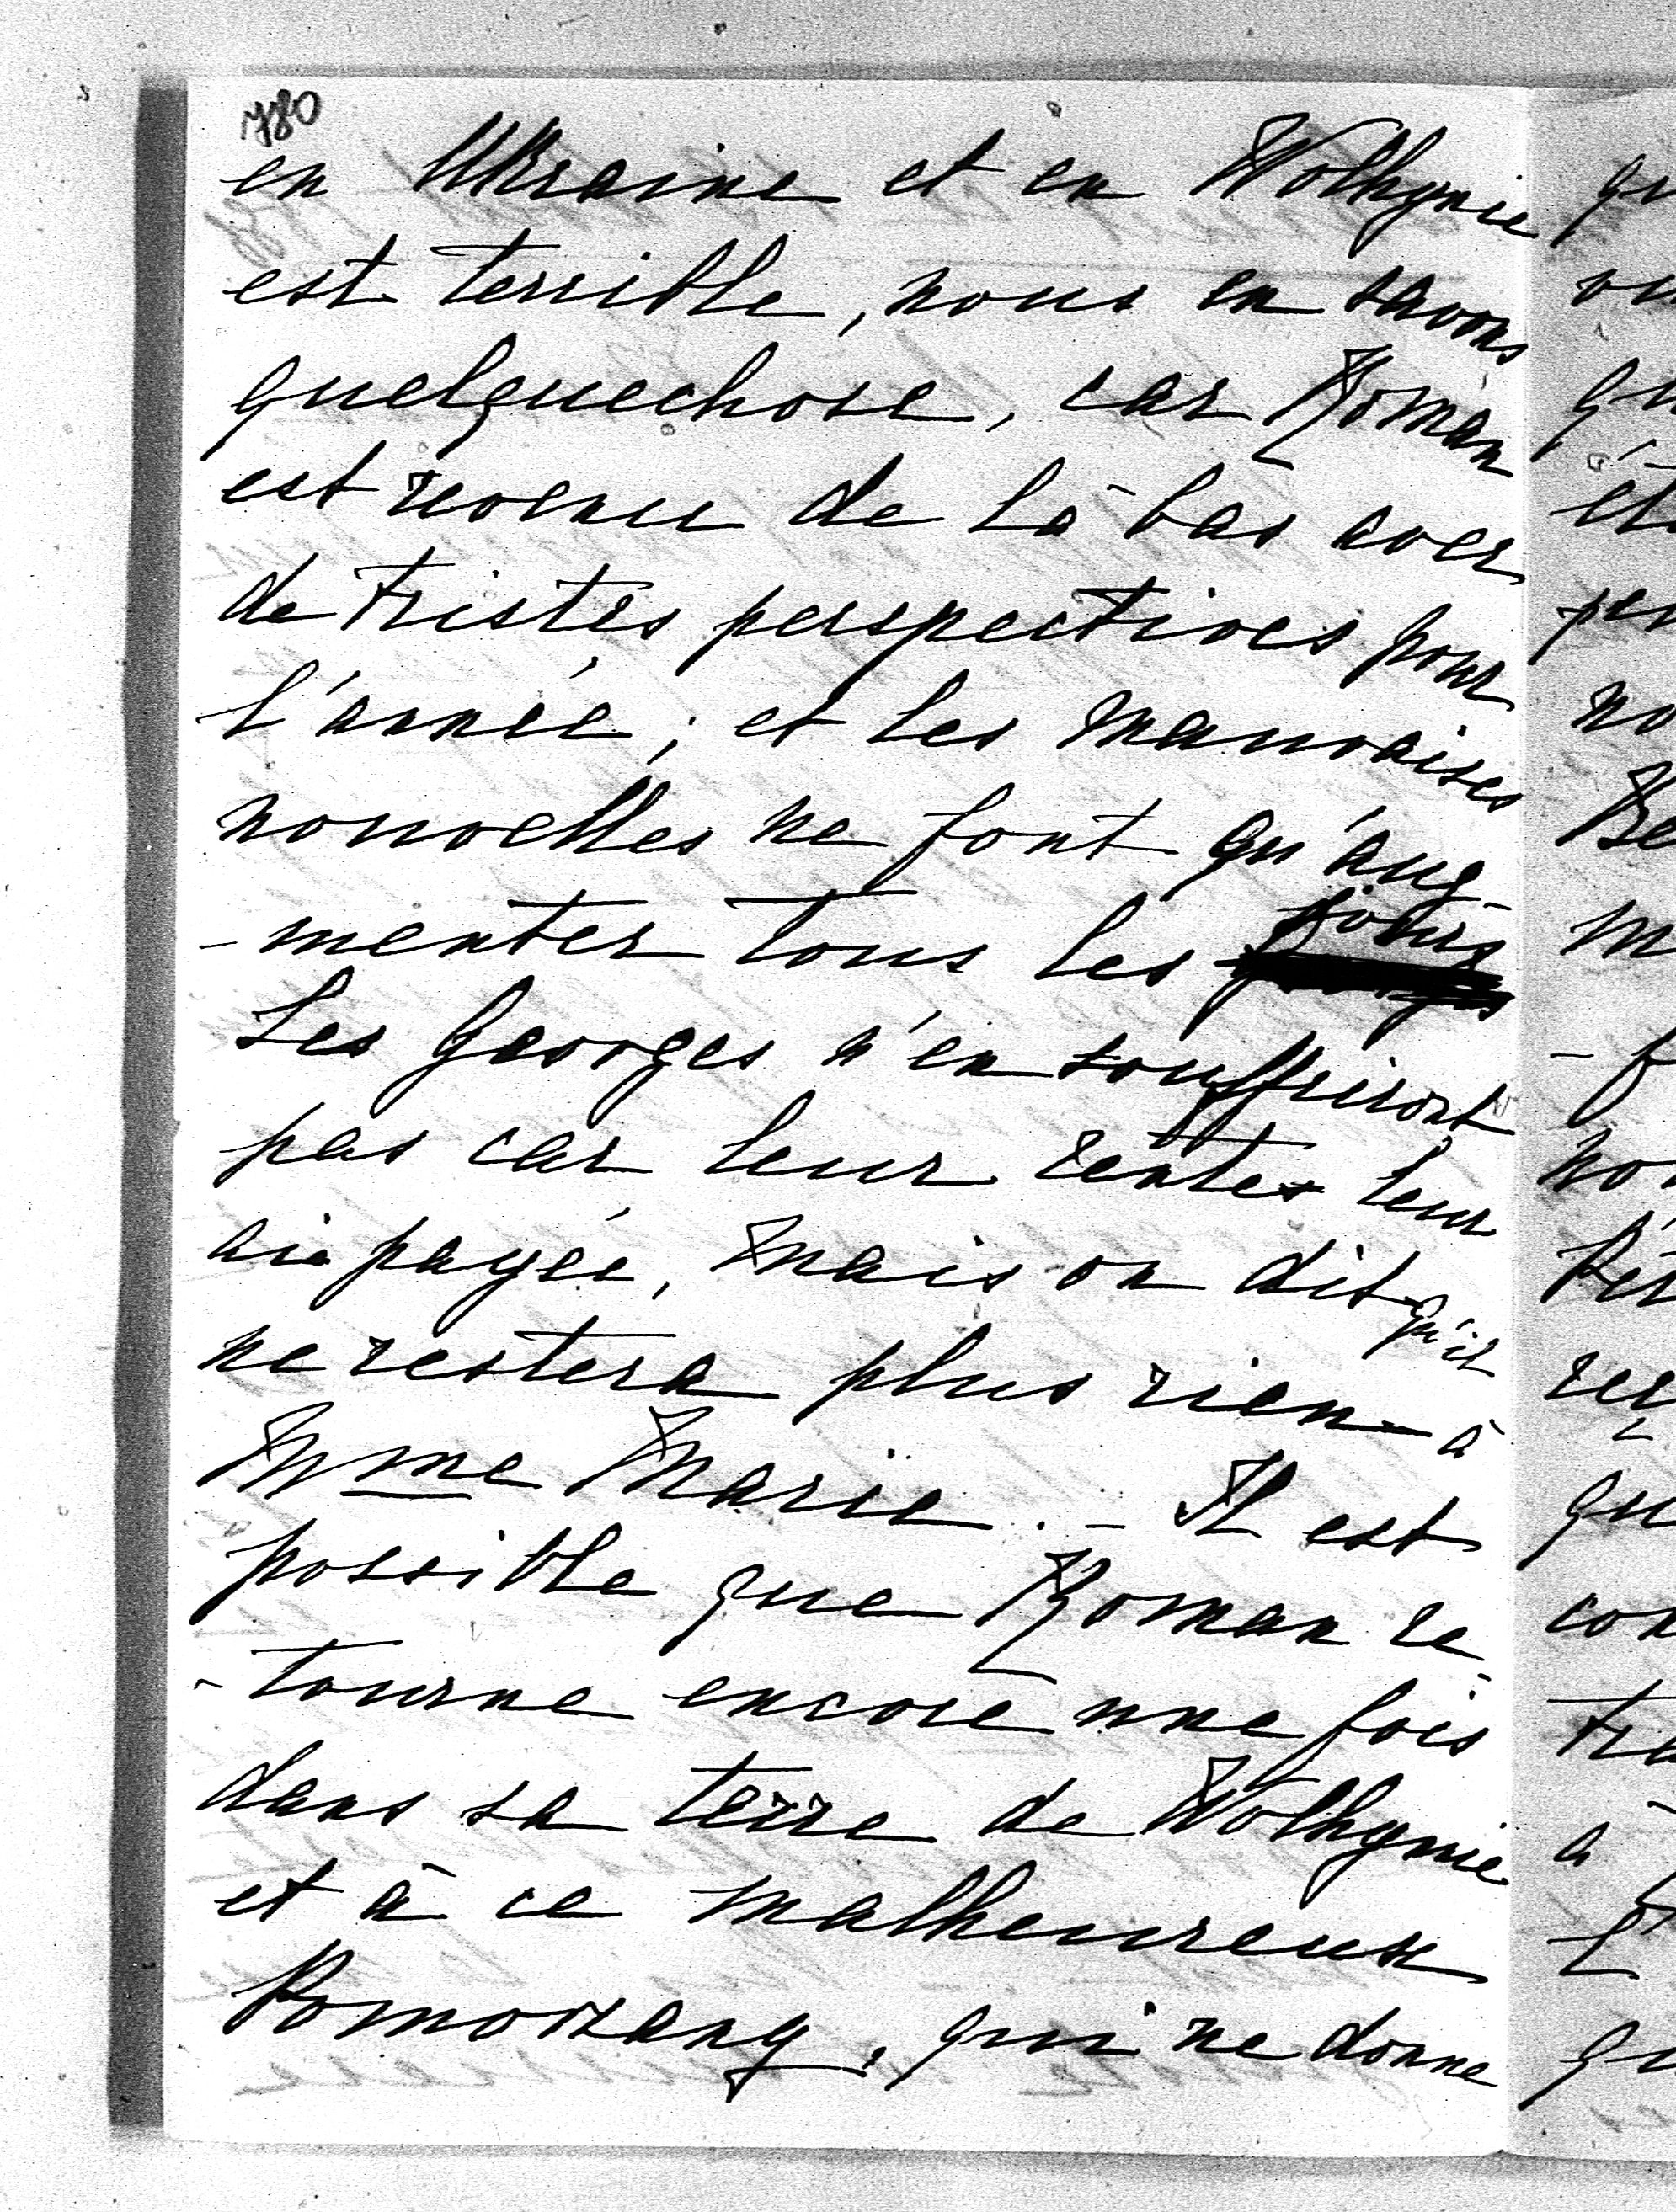 780
en Ukraine et en Wolhynie
est terrible, nous en savons
quelquechose, car Roman
est revenu de là-bas avec
de tristes perspectives pour
l'année; et les mauvaises
nouvelles ne font qu'aug-
-menter tous les jours
Les Georges n'en souffriront
pas car leur rente leur
payée, mais on dit qu'il
ne restera plus rien à
Mme Marie. - Il est
possible que Roman re-
-tourne encore une fois
dans sa terre de Wolhynie
et à ce malheureux
Pomorzany, qui ne donne